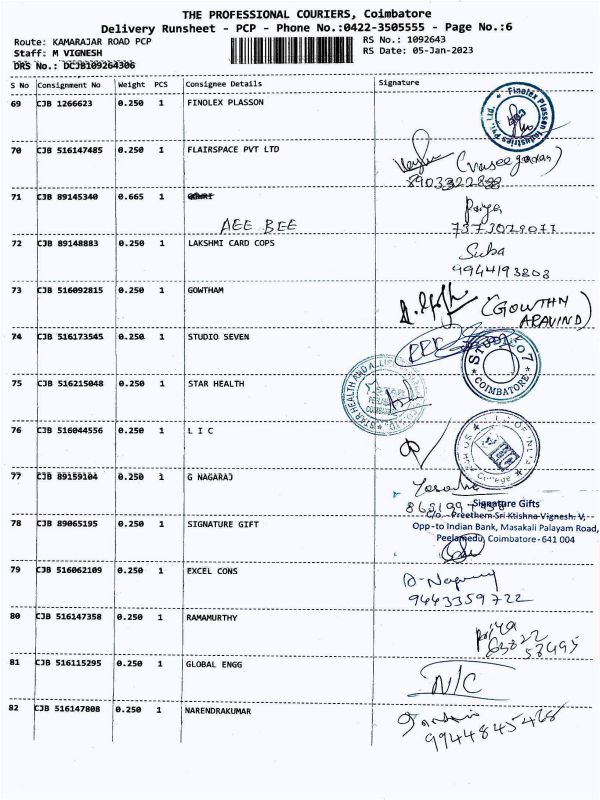 THE PROFESSIONAL COURIERS, Coimbatore
Delivery Runsheet - PCP - Phone No.:0422-3505555 - Page No.:6
Route: KAMARAJAR ROAD PCP RS No.: 1092643
Staff: M VIGNESH RS Date: 05-Jan-2023
DRS No.: DCJB109264306
S No Consignment No Weight PCS Consignee Details Signature
69 CJB 1266623 0.250 1 FINOLEX PLASSON
Finolex Plasson Industries Pvt. Ltd.
70 CJB 516147485 0.250 1 FLAIRSPACE PVT LTD
8903322888
71 CJB 89145340 0.665 1 GOWRI
AEE BEE
Priya
7373029077
72 CJB 89148883 0.250 1 LAKSHMI CARD COPS
Suba
9944193803
73 CJB 516092815 0.250 1 GOWTHAM
(GOWTHM
ARAVIND)
74 CJB 516173545 0.250 1 STUDIO SEVEN
COIMBATORE
75 CJB 516215048 0.250 1 STAR HEALTH
STAR HEALTH AND
76 CJB 516044556 0.250 1 L I C
College
77 CJB 89159104 0.250 1 G NAGARAJ
78 CJB 89065195 0.250 1 SIGNATURE GIFT
Signature Gifts
C/o. Preethem Sri Ktishna Vignesh. V,
Opp-to Indian Bank, Masakali Palayam Road,
Peelamedu, Coimbatore - 641 004
79 CJB 516062109 0.250 1 EXCEL CONS
9443359722
80 CJB 516147358 0.250 1 RAMAMURTHY
priya
63822
58495
81 CJB 516115295 0.250 1 GLOBAL ENGG
N/C
82 CJB 516147808 0.250 1 NARENDRAKUMAR
9944845468